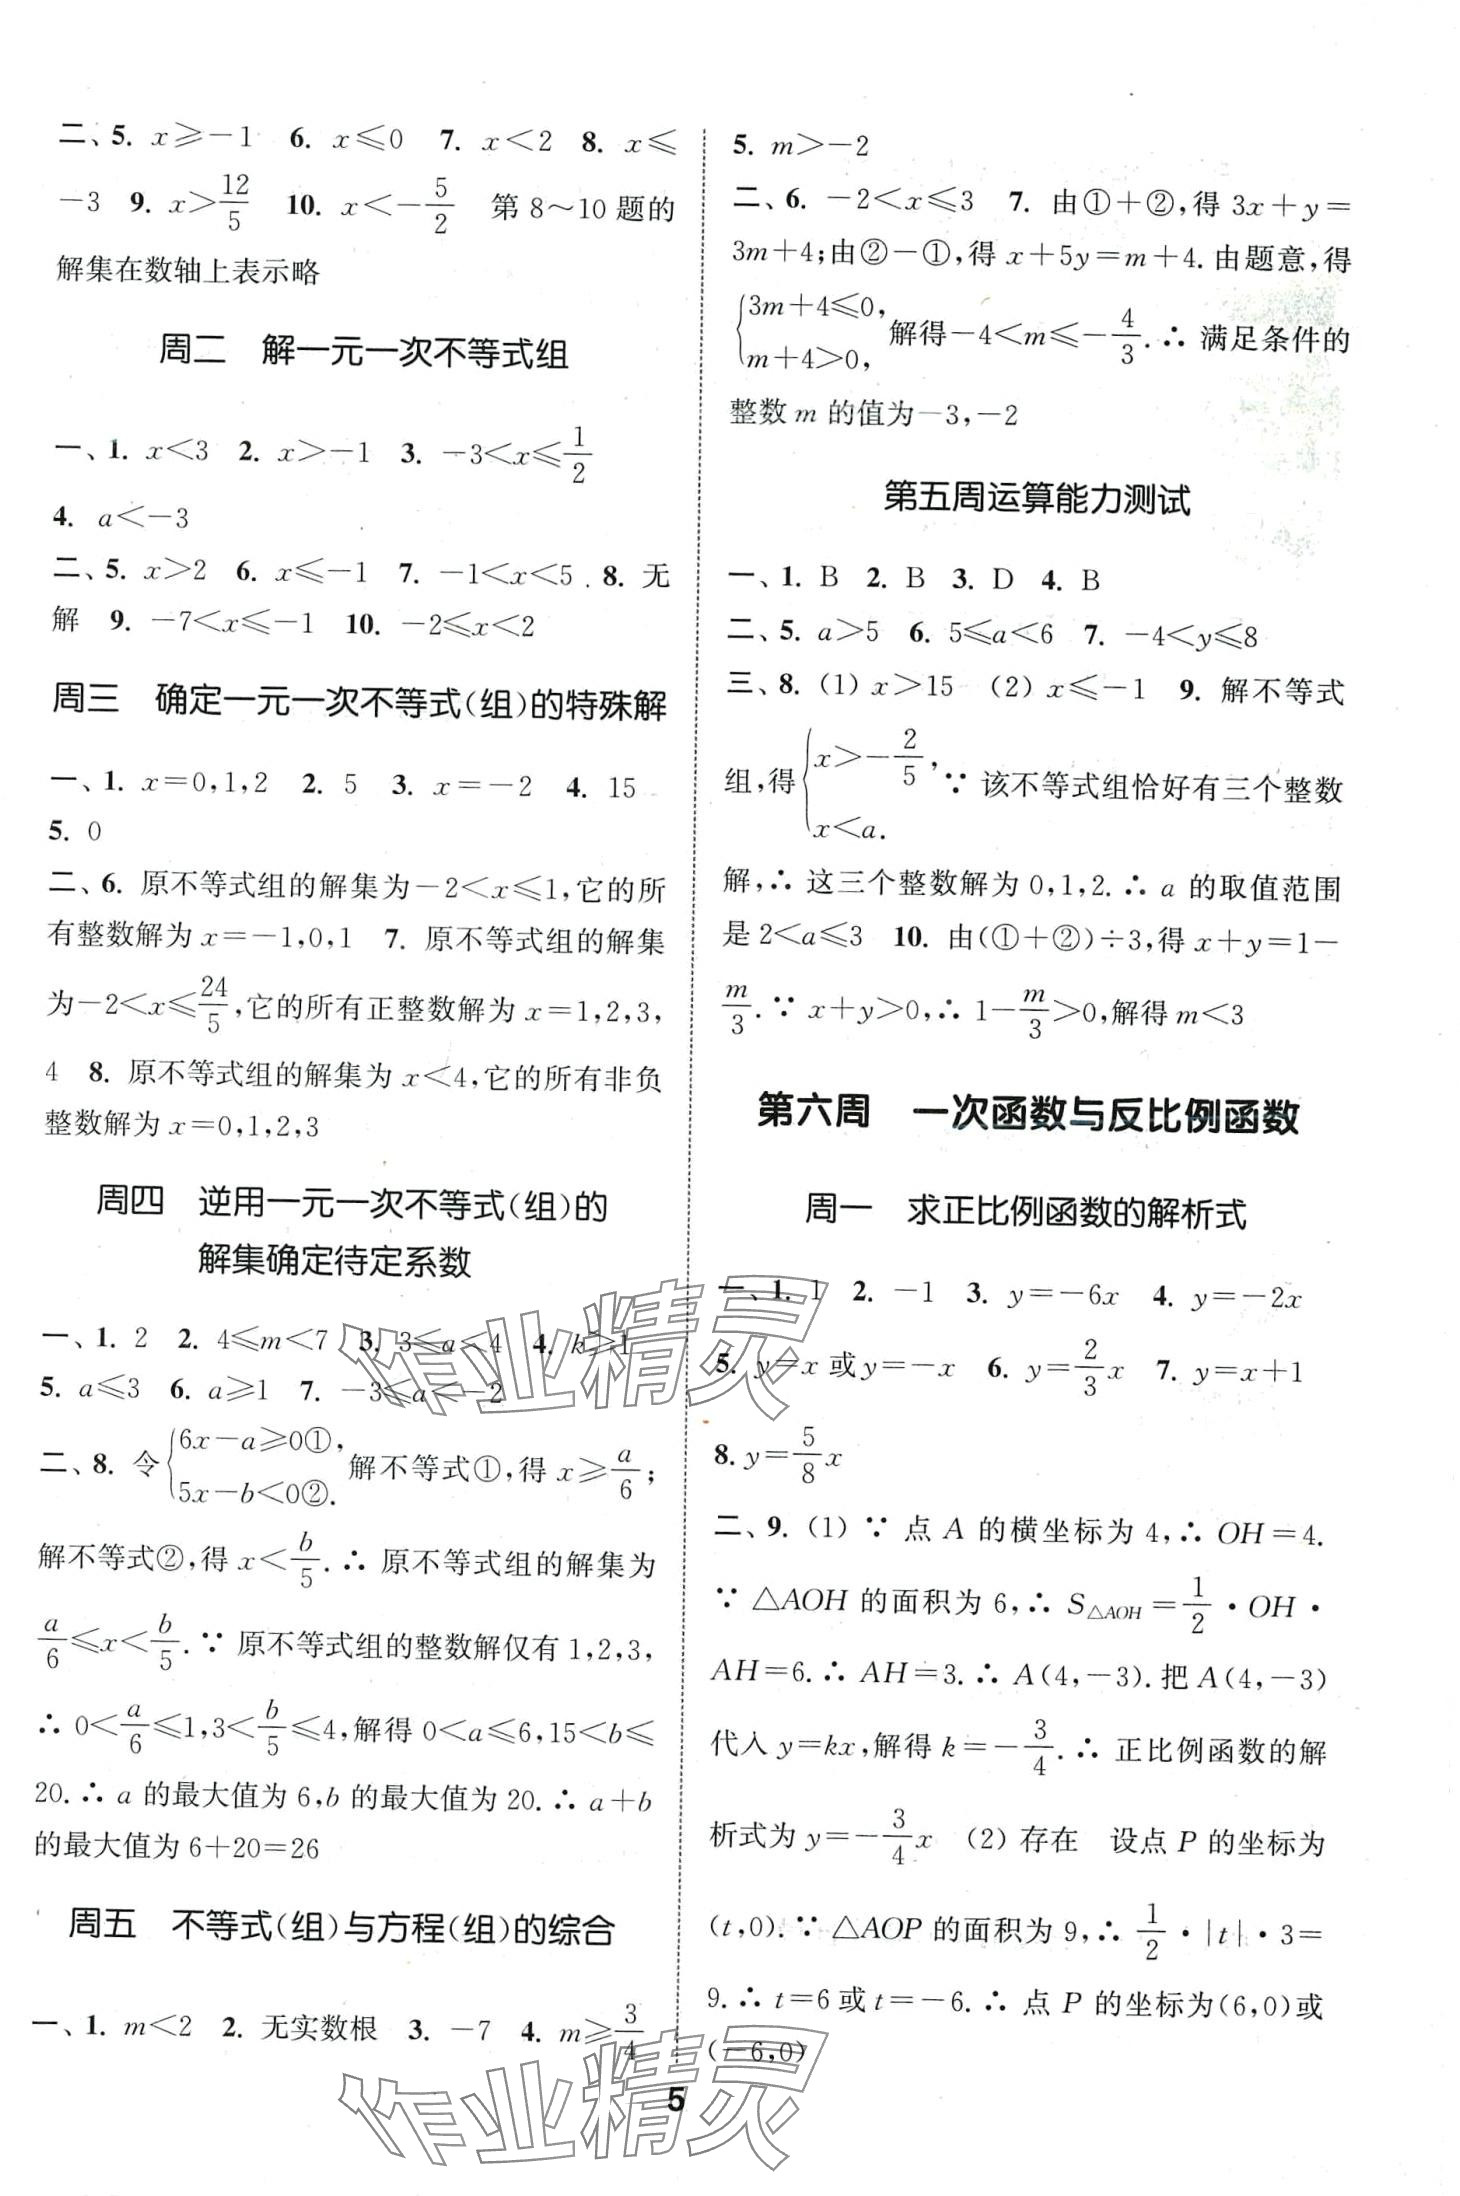 二、5. x⩾−1  6. x⩽0  7. x<2  8. x⩽
−3  9. x>12/5  10. x<−5/2  第 8~10 题的
解集在数轴上表示略
周二 解一元一次不等式组
一、1. x<3  2. x>−1  3. −3<x⩽1/2
4. a<−3
二、5. x>2  6. x⩽−1  7. −1<x<5 . 8. 无
解  9. −7<x⩽−1  10. −2⩽x<2
周三 确定一元一次不等式(组)的特殊解
一、1. x=0,1,2  2. 5  3. x=−2  4. 15
5. 0
二、6. 原不等式组的解集为−2<x⩽1,它的所
有整数解为 x=−1,0,1  7. 原不等式组的解集
为−2<x⩽24/5,它的所有正整数解为 x=1,2,3,
4  8. 原不等式组的解集为 x<4,它的所有非负
整数解为 x=0,1,2,3
周四 逆用一元一次不等式(组)的
解集确定待定系数
一、1. 2  2. 4⩽m<7  3. 3⩽a<4  4. k⩾1
5. a⩽3  6. a⩾1  7. −3⩽a<−2
二、8. 令{6x−a⩾0①, 5x−b<0②. 解不等式①,得 x⩾a/6;
解不等式②,得 x<b/5.∴ 原不等式组的解集为
a/6⩽x<b/5.∵ 原不等式组的整数解仅有 1,2,3,
∴ 0<a/6⩽1,3<b/5⩽4,解得 0<a⩽6,15<b⩽
20.∴ a 的最大值为 6,b 的最大值为 20.∴ a+b
的最大值为 6+20=26
周五 不等式(组)与方程(组)的综合
一、1. m<2  2. 无实数根  3. −7  4. m⩾3/4
5. m>−2
二、6. −2<x⩽3  7. 由①+②,得 3x+y=
3m+4;由②−①,得 x+5y=m+4. 由题意,得
{3m+4⩽0, m+4>0, 解得−4<m⩽−4/3.∴ 满足条件的
整数 m 的值为−3,−2
第五周运算能力测试
一、1. B  2. B  3. D  4. B
二、5. a>5  6. 5⩽a<6  7. −4<y⩽8
三、8. (1) x>15  (2) x⩽−1  9. 解不等式
组,得{x>−2/5, x<a. ∵ 该不等式组恰好有三个整数
解,∴ 这三个整数解为 0,1,2.∴ a 的取值范围
是 2<a⩽3  10. 由(①+②)÷3,得 x+y=1−
m/3.∵ x+y>0,∴ 1−m/3>0,解得 m<3
第六周 一次函数与反比例函数
周一 求正比例函数的解析式
一、1. 1  2. −1  3. y=−6x  4. y=−2x
5. y=x 或 y=−x  6. y=2/3x  7. y=x+1
8. y=5/8x
二、9. (1) ∵ 点 A 的横坐标为 4,∴ OH=4.
∵ △AOH 的面积为 6,∴ S△AOH=1/2·OH·
AH=6.∴ AH=3.∴ A(4,−3). 把 A(4,−3)
代入 y=kx,解得 k=−3/4.∴ 正比例函数的解
析式为 y=−3/4x  (2) 存在  设点 P 的坐标为
(t,0).∵ △AOP 的面积为 9,∴ 1/2·|t|·3=
9.∴ t=6 或 t=−6.∴ 点 P 的坐标为(6,0)或
(−6,0)
5
作业精灵
作业精灵